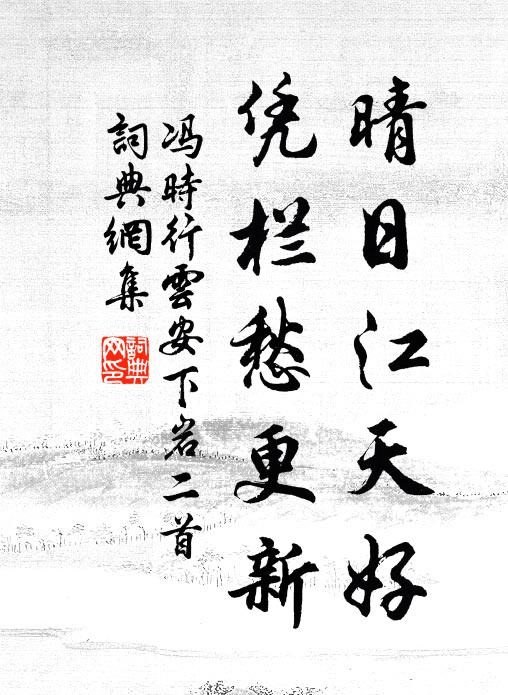 晴日江天好
凭栏愁更新
冯時行雲安下岩二首
詞典網集
詞典网印